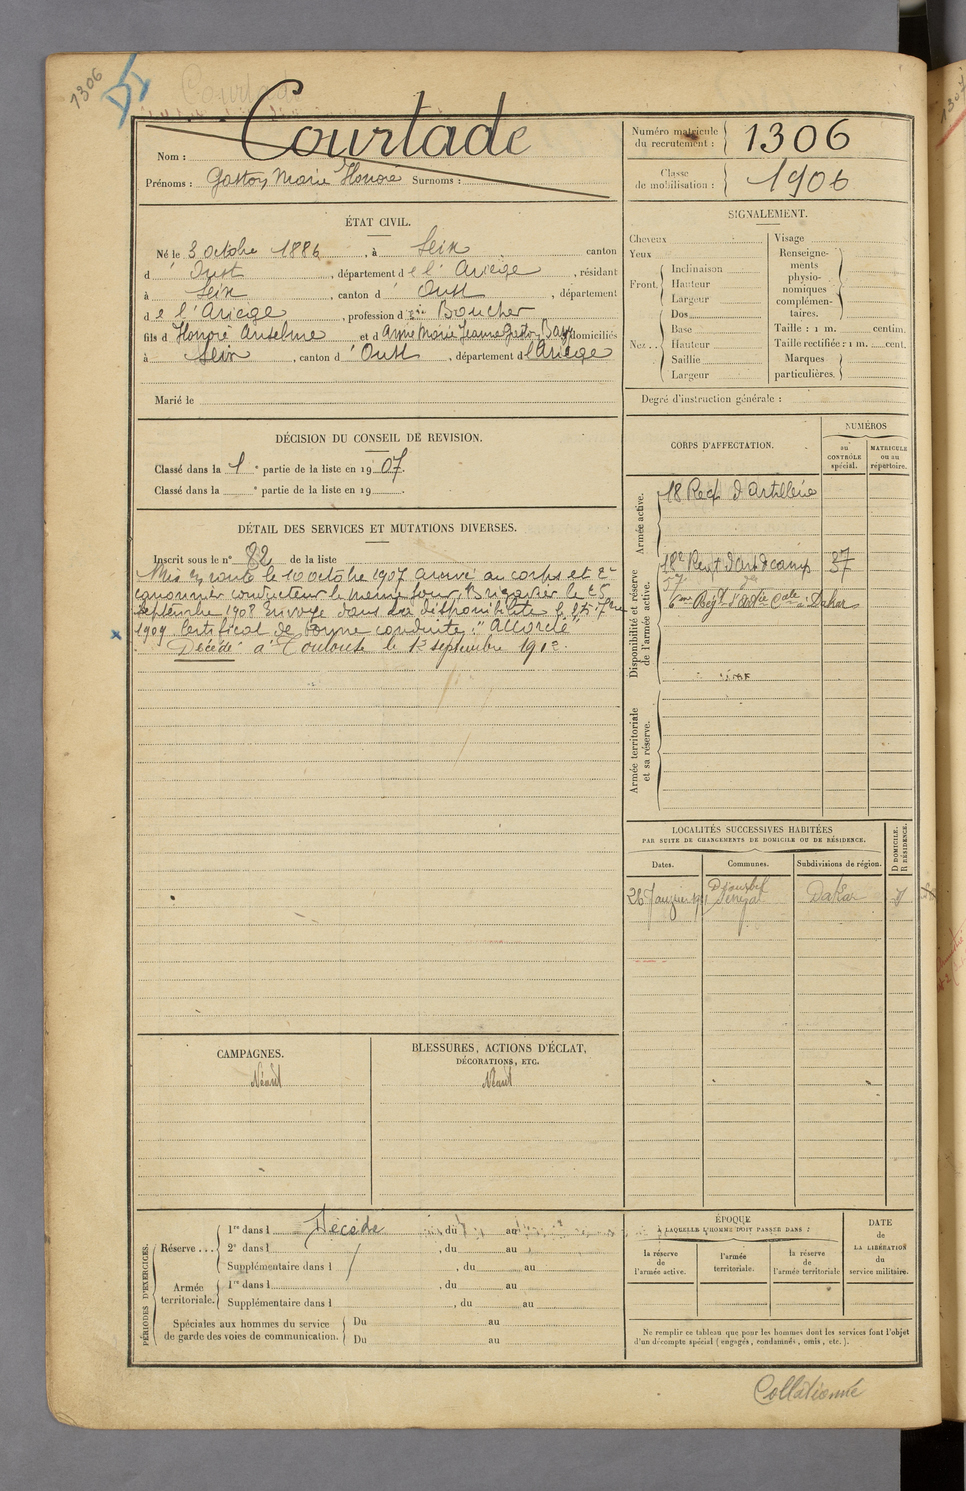 1306
Courtade
Nom :
Prénoms : Gaston Marie Honoré Surnoms :
Numéro matricule
du recrutement : 1306
Classe
de mobilisation : 1906
ÉTAT CIVIL.
Né le 3 octobre 1886, à Seix canton
d' Oust, département de l'Ariège, résidant
à Seix, canton d' Oust, département
de l'Ariège, profession de Boucher
fils d' Honoré Anselme et d' Anne Marie Jeanne domiciliés
à Seix, canton d' Oust, département d l'Ariège
Marié le
SIGNALEMENT.
Cheveux :
Yeux :
Front. Inclinaison
Hauteur
Largeur
Nez... Dos
Base
Hauteur
Saillie
Largeur
Visage
Renseigne-
ments
physio-
nomiques
complémen-
taires.
Taille : 1 m. centim.
Taille rectifiée : 1 m. cent.
Marques
particulières.
Degré d'instruction générale :
DÉCISION DU CONSEIL DE REVISION.
Classé dans la 1e partie de la liste en 1907.
Classé dans la e partie de la liste en 19 .
CORPS D'AFFECTATION.
NUMÉROS
au
CONTRÔLE
spécial.
MATRICULE
ou au
répertoire.
Armée active.
18 Regt d'Artillerie
Disponibilité et réserve
de l'armée active.
18e Regt d'Art de camp 37
6me Regt d'Artie Cale à Dakar
Armée territoriale
et sa réserve.
DÉTAIL DES SERVICES ET MUTATIONS DIVERSES.
Inscrit sous le n° 82 de la liste
Mis en route le 10 octobre 1907 arrivé au corps et 2e
canonnier conducteur le même jour. Brigadier le 25
Septembre 1908 Envoyé dans la disponibilité le 25 7bre
1909 Certificat de bonne conduite : "Accordé"
Décédé à Toulouse le 1er septembre 1912.
LOCALITÉS SUCCESSIVES HABITÉES
PAR SUITE DE CHANGEMENTS DE DOMICILE OU DE RÉSIDENCE.
Dates.
Communes.
Subdivisions de région.
D DOMICILE.
R RÉSIDENCE.
26 Janvier Diourbel
Sénégal Dakar
CAMPAGNES.
Néant
BLESSURES, ACTIONS D'ÉCLAT,
DÉCORATIONS, ETC.
Néant
PÉRIODES D'EXERCICES.
Réserve... 1re dans l Décédé, du au
2e dans l, du au
Supplémentaire dans l, du au
Armée
territoriale. 1re dans l, du au
Supplémentaire dans l, du au
Spéciales aux hommes du service
de garde des voies de communication. Du au
Du au
ÉPOQUE
À LAQUELLE L'HOMME DOIT PASSER DANS :
la réserve
de
l'armée active.
l'armée
territoriale.
la réserve
de
l'armée territoriale
DATE
de
LA LIBÉRATION
du
service militaire.
Ne remplir ce tableau que pour les hommes dont les services font l'objet
d'un décompte spécial (engagés, condamnés, omis, etc.).
Collationné